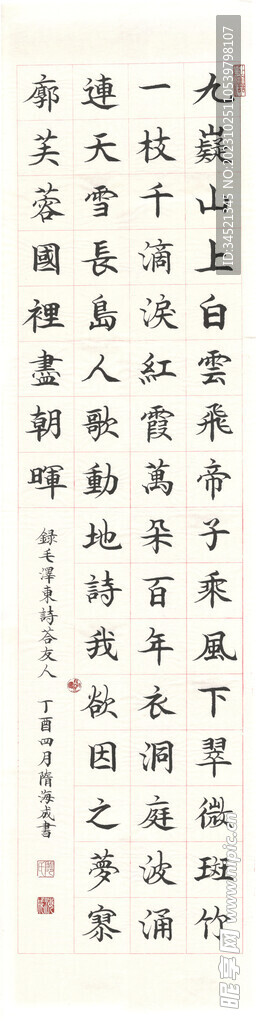 九嶷山上白雲飛帝子乘風下翠微斑竹
一枝千滴淚紅霞萬朵百年衣洞庭波涌
連天雪長島人歌動地詩我欲因之夢寥
廓芙蓉國裡盡朝暉
録毛澤東詩荅友人 丁酉四月隋海成書
ID:34521345 NO:20231025110539798107
昵图网 www.nipic.cn